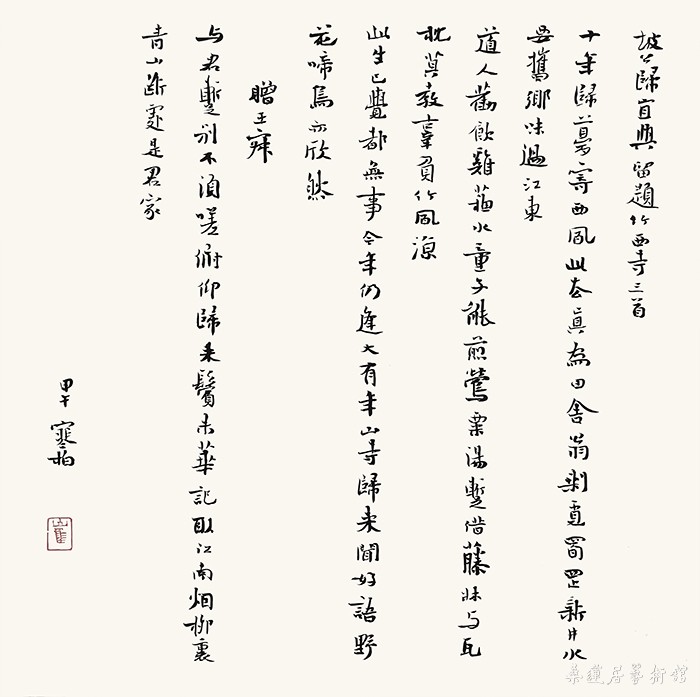 坡公歸宜興留題竹西寺三首
十年歸夢寄西風此去眞為田舍翁剩覓蜀罡新井水
要攜鄉味過江東
道人勸飲雞蘇水童子能煎鶯粟湯暫借藤牀与瓦
枕莫教辜負竹風涼
此生已覺都無事今年仍逢大有年山寺歸來聞好語野
花啼鳥亦欣然
贈王寐
与君暫別不須嗟俯仰歸來鬢未華記取江南烟柳裏
青山斷處是君家
甲午 寒柏
崔
蓮居藝術館